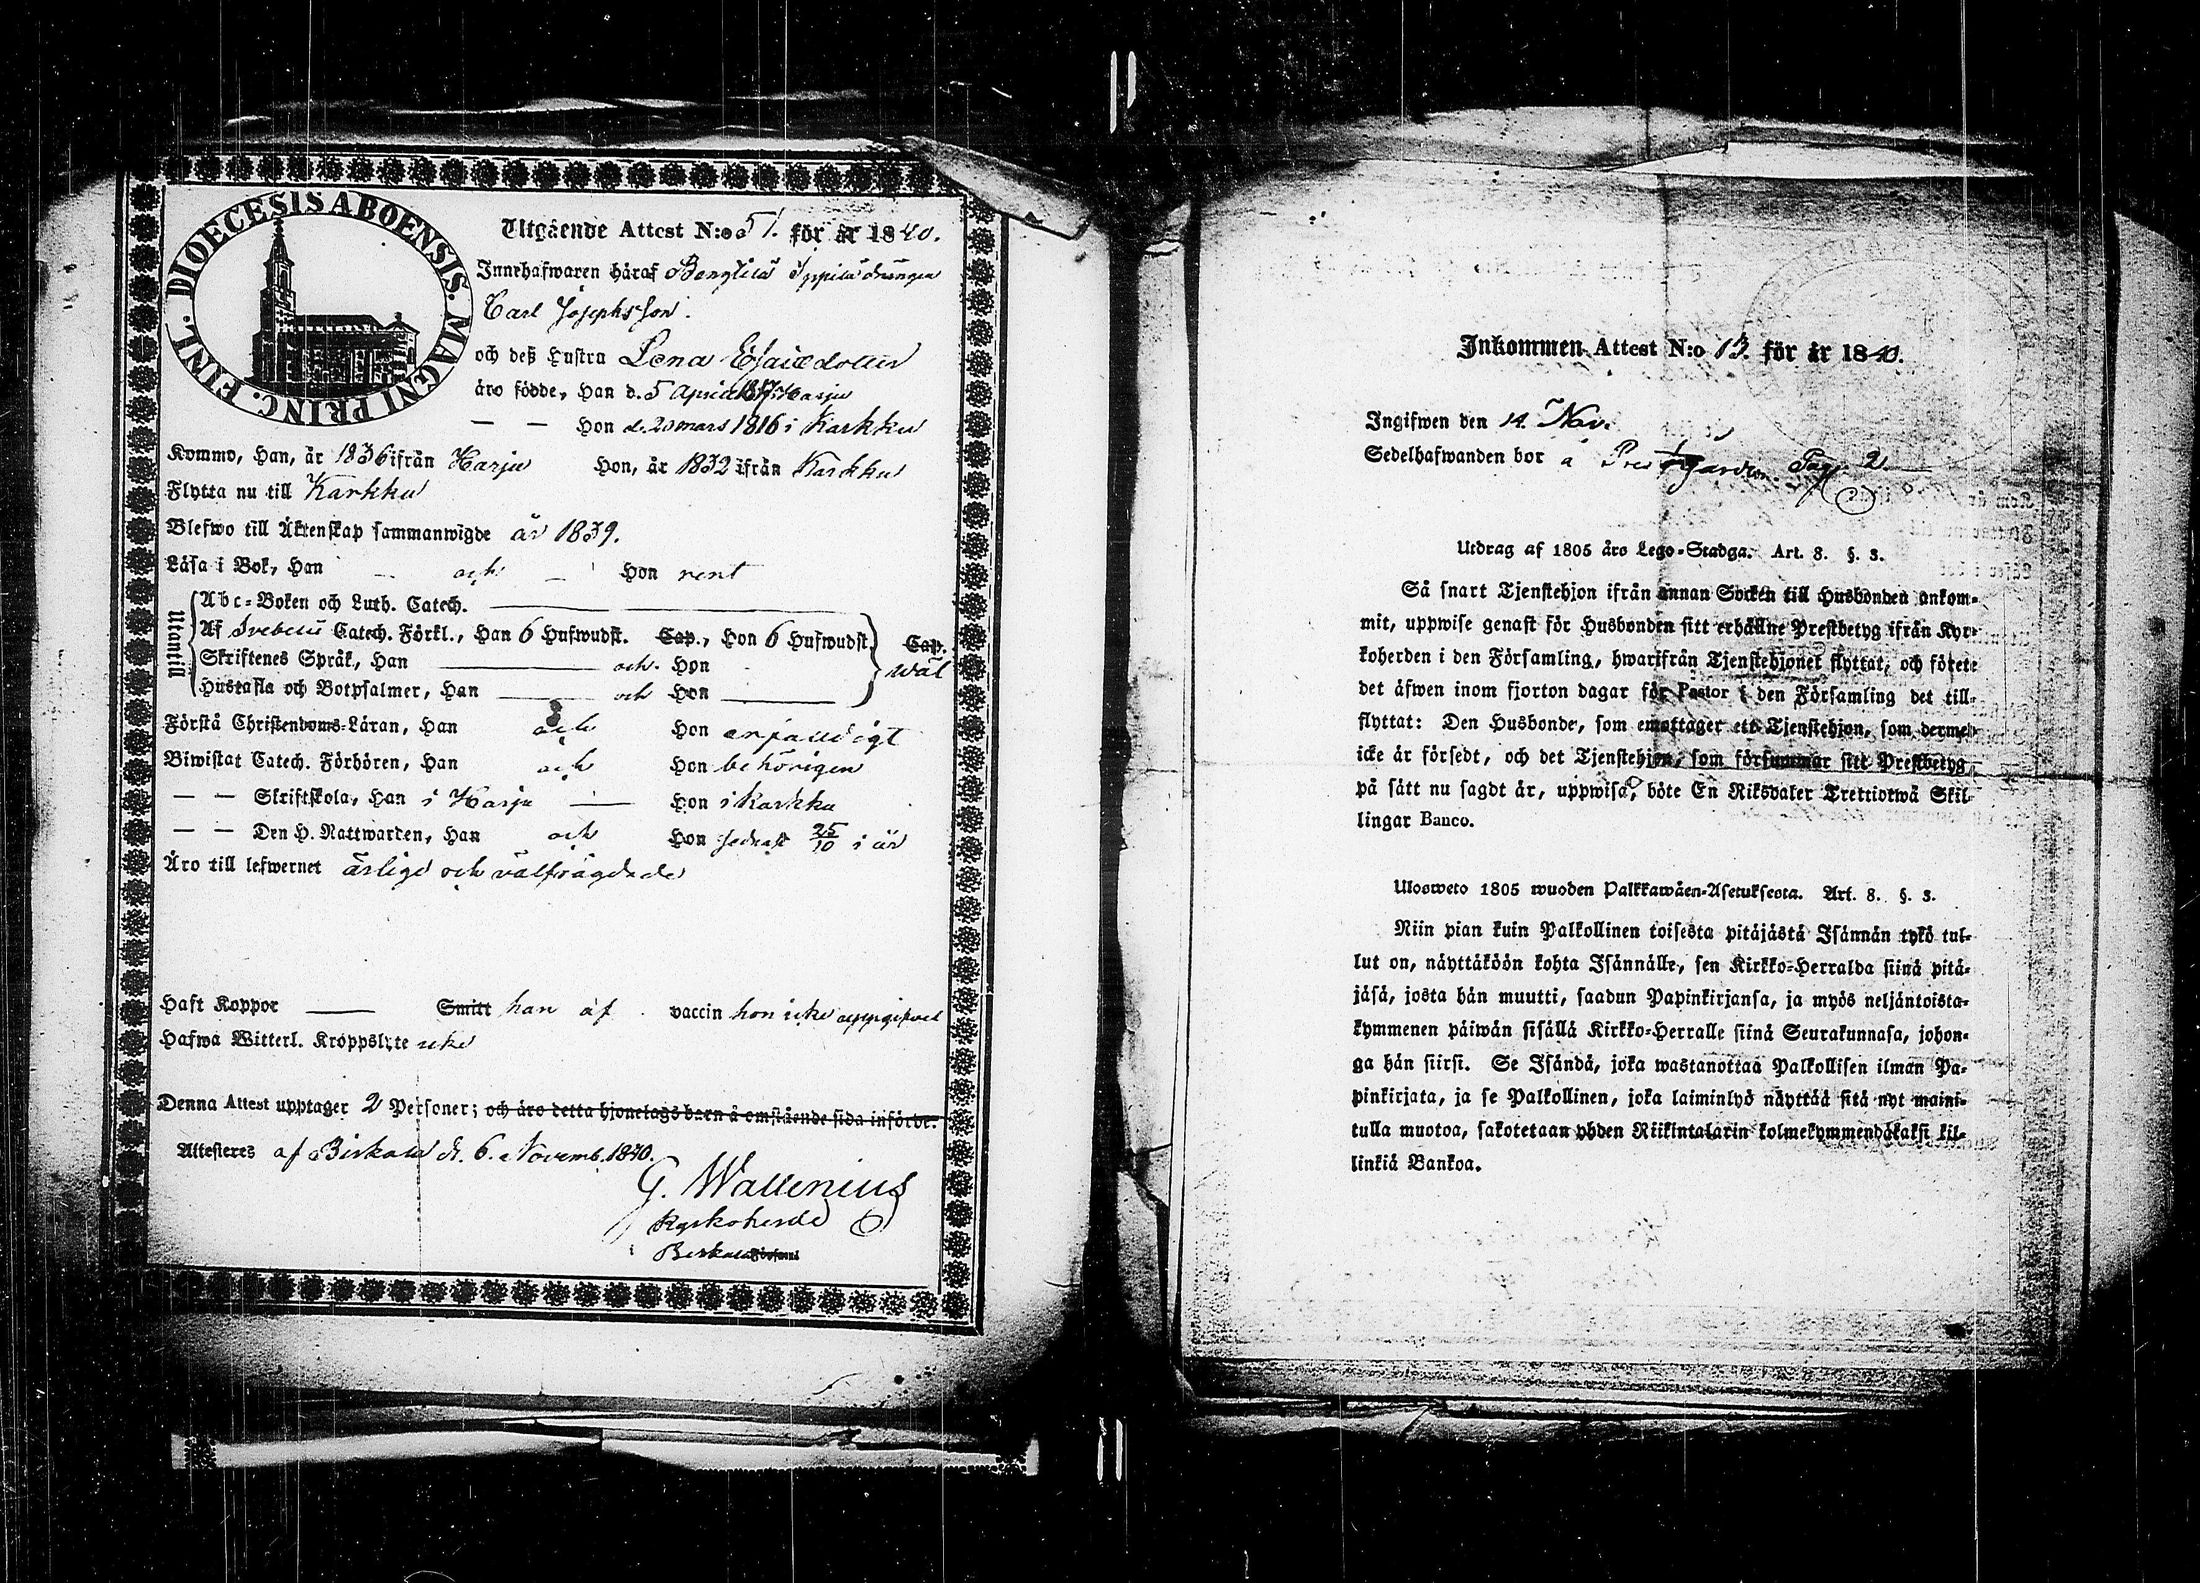 DIOECESIS ABOENSIS. MAGNI PRINC. FINL.
Utgående Attest N:o 51. för år 1840.
Innehafwaren häraf
Carl Josephsson.
och deß Hustru Lena Esaiædotter
äro födde, Han d. 5 April 1817 i Harju
— — Hon d. 20 mars 1816 i Karkku
Kommo, Han, år 1836 ifrån Harju Hon, år 1832 ifrån Karkku
Flytta nu till Karkku
Blefwo till Äktenskap sammanwigde år 1839.
Läsa i Bok, Han — och — Hon rent
Utantill
Abc-Boken och Luth. Catech. ———
Af Svebelii Catech. Förkl., Han 6 Hufwudst. Cap., Hon 6 Hufwudst. Cap.
Skriftenes Språk, Han ——— och Hon wäl
Hustafla och Botpsalmer, Han ——— och Hon ———
Förstå Christendoms-Läran, Han och Hon
Biwistat Catech. Förhören, Han och Hon behörigen
— — Skriftskola, Han i Harju — Hon i Karkku
— — Den H. Nattwarden, Han och Hon sednast 25/10 i år
Äro till lefwernet ärlige och välfrägdade
Haft Koppor —— Smitt han af vaccin hon icke uppgifvet
Hafwa Witterl. Kroppslyte icke
Denna Attest upptager 2 Personer; och äro detta hjonelags barn å omstående sida införde.
Attesteres af Birkala d. 6. Novemb. 1840.
G. Wallenius
Kyrkoherde
Birkala
Inkommen Attest N:o 13. för år 1840.
Ingifwen den 14. Nov.
Sedelhafwanden bor å Prestgården. Pag. 2
Utdrag af 1805 års Lego-Stadga. Art. 8. §. 3.
Så snart Tjenstehjon ifrån annan Socken till Husbonden ankom-
mit, uppwise genast för Husbonden sitt erhållne Prestbetyg ifrån Kyr-
koherden i den Församling, hwarifrån Tjenstehjonet flyttat, och förete
det äfwen inom fjorton dagar för Pastor i den Församling det till-
flyttat: Den Husbonde, som emottager ett Tjenstehjon, som dermed
icke är försedt, och det Tjenstehjon, som försummar sitt Prestbetyg,
på sätt nu sagdt är, uppwisa, böte En Riksdaler Trettiotwå Skil-
lingar Banco.
Ulosweto 1805 wuoden Palkkawäen-Asetuksesta. Art. 8. §. 3.
Niin pian kuin Palkollinen toisesta pitäjästä Isännän tykö tul-
lut on, näyttäköön kohta Isännälle, sen Kirkko-Herralda siinä pitä-
jäsä, josta hän muutti, saadun Papinkirjansa, ja myös neljäntoista-
kymmenen päiwän sisällä Kirkko-Herralle siinä Seurakunnasa, johon-
ga hän siirsi. Se Isändä, joka wastanottaa Palkollisen ilman Pa-
pinkirjata, ja se Palkollinen, joka laiminlyö näyttää sitä nyt maini-
tulla muotoa, sakotetaan yhden Riikintalarin kolmekymmendäkaksi kil-
linkiä Bankoa.